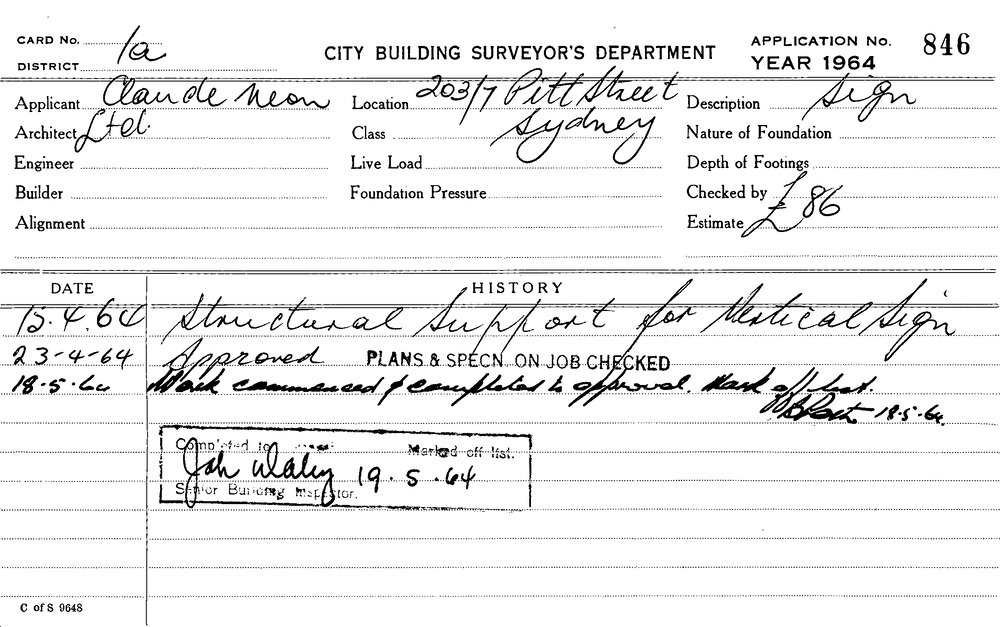 CARD No. 1a
CITY BUILDING SURVEYOR'S DEPARTMENT
APPLICATION No. 846
DISTRICT
YEAR 1964
Applicant Claude Neon
Location 203/7 Pitt Street
Description Sign
Architect Ltd.
Class Sydney
Nature of Foundation
Engineer
Live Load
Depth of Footings
Builder
Foundation Pressure
Checked by
Alignment
Estimate £86
DATE HISTORY
15.4.64 Structural Support for Vertical Sign
23-4-64 Approved PLANS & SPECN. ON JOB CHECKED
18-5-64 Work commenced & completed to approval. Mark off list.
18.5.64.
Completed to Marked off list.
19.5.64
Senior Building Inspector.
C of S 9648